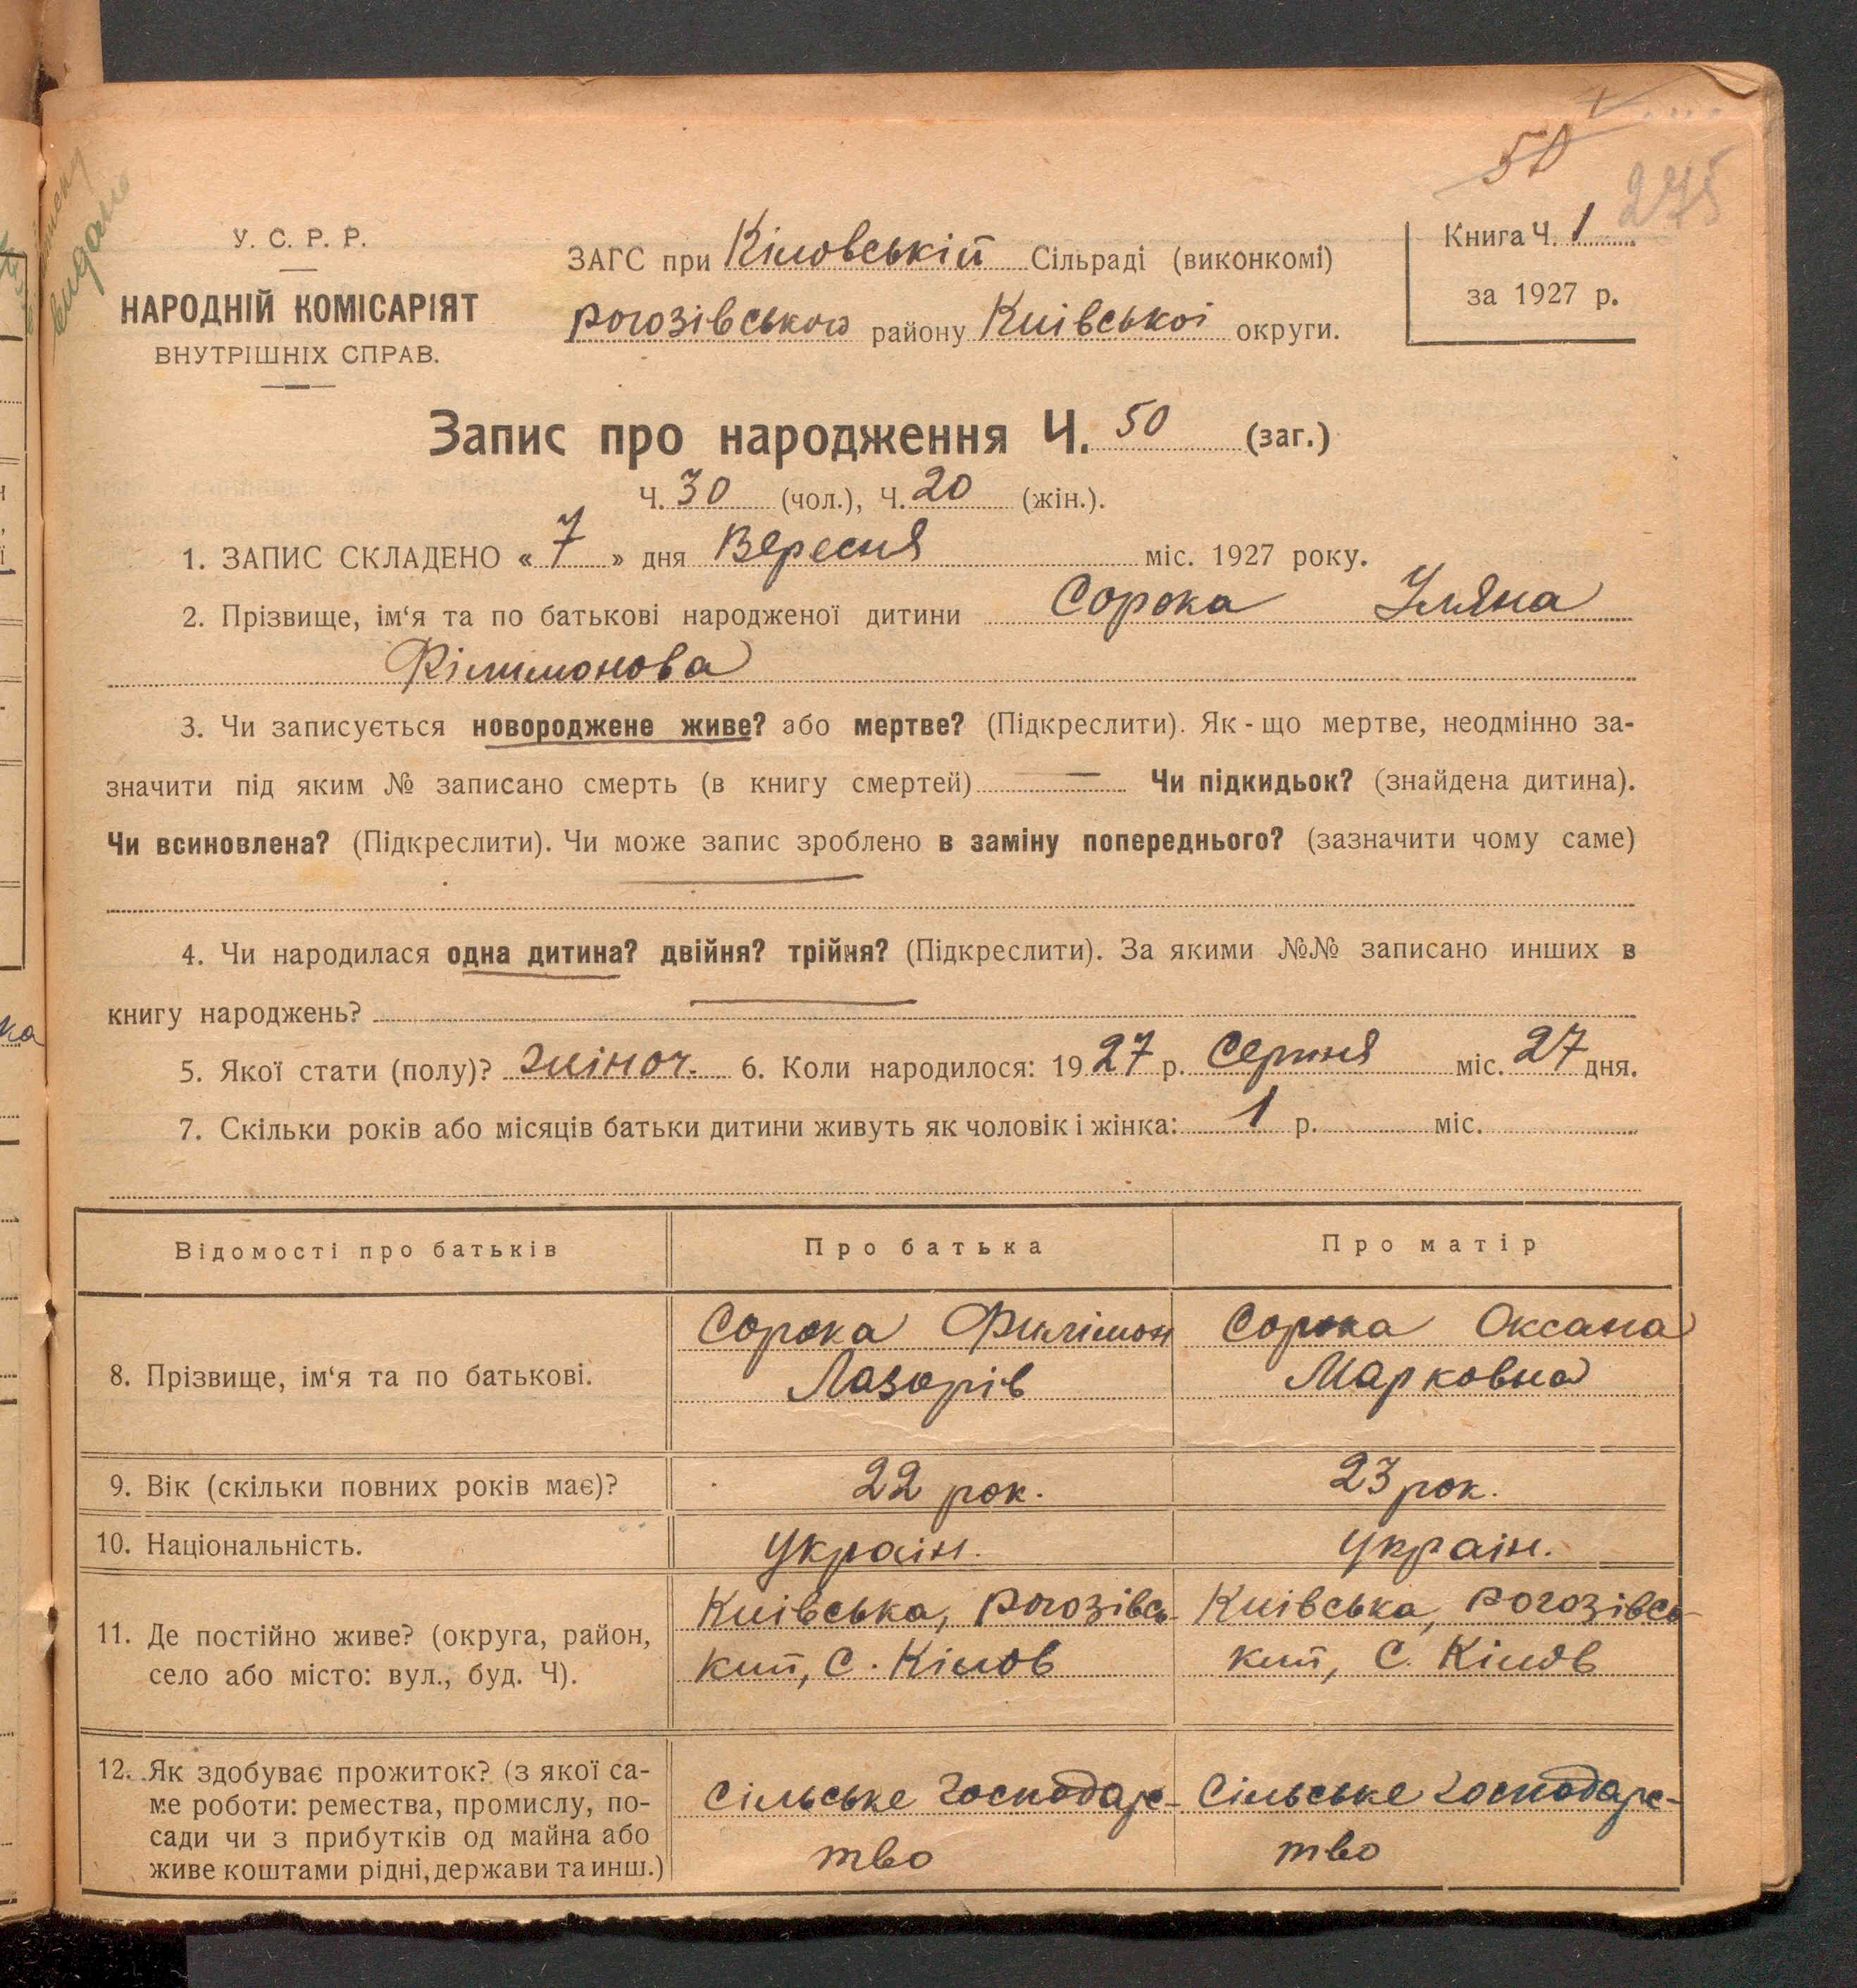 50
275
У. С. Р. Р.
НАРОДНІЙ КОМІСАРІЯТ
ВНУТРІШНІХ СПРАВ.
ЗАГС при Кіловській Сільраді (виконкомі)
Рогозівського району Київської округи.
Книга Ч. 1
за 1927 р.
Запис про народження Ч. 50 (заг.)
Ч. 30 (чол.), Ч. 20 (жін.).
1. ЗАПИС СКЛАДЕНО « 7 » дня Вересня міс. 1927 року.
2. Прізвище, ім‘я та по батькові народженої дитини Сорока Уляна
Філімонова
3. Чи записується новороджене живе? або мертве? (Підкреслити). Як - що мертве, неодмінно за-
значити під яким № записано смерть (в книгу смертей) — Чи підкидьок? (знайдена дитина).
Чи всиновлена? (Підкреслити). Чи може запис зроблено в заміну попереднього? (зазначити чому саме)
4. Чи народилася одна дитина? двійня? трійня? (Підкреслити). За якими №№ записано инших в
книгу народжень?
5. Якої стати (полу)? жіноч. 6. Коли народилося: 19 27 р. Серпня міс. 27 дня.
7. Скільки років або місяців батьки дитини живуть як чоловік і жінка: 1 р. міс.
Відомості про батьків Про батька Про матір
8. Прізвище, ім‘я та по батькові.
Сорока Филімон
Лазорів
Сорока Оксана
Марковна
9. Вік (скільки повних років має)? 22 рок. 23 рок.
10. Національність. Украін. Украін.
11. Де постійно живе? (округа, район,
село або місто: вул., буд. Ч).
Київська, Рогозівсь-
кий, С. Кілов
Київська, Рогозівсь-
кий, С. Кілов
12. Як здобуває прожиток? (з якої са-
ме роботи: ремества, промислу, по-
сади чи з прибутків од майна або
живе коштами рідні, держави та инш.)
Сільське господарс-
тво
Сільське господарс-
тво